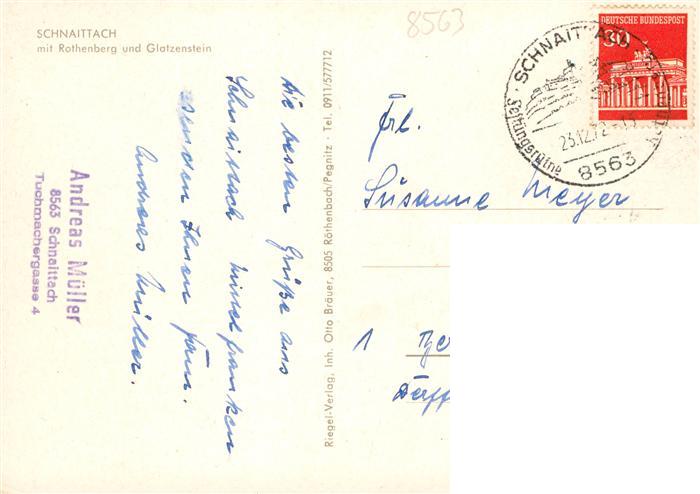 SCHNAITTACH
mit Rothenberg und Glatzenstein
8563
Die besten Grüße aus
Schnaittach Mittelfranken
senden Ihnen Fam.
Andreas Müller.
Andreas Müller
8563 Schnaittach
Tuchmachergasse 4
Riegel-Verlag, Inh. Otto Bräuer, 8505 Röthenbach/Pegnitz · Tel. 0911/577712
DEUTSCHE BUNDESPOST
30
SCHNAITTACH
23.12.72
8563
Festungsruine
Frl.
Susanne Meyer
1